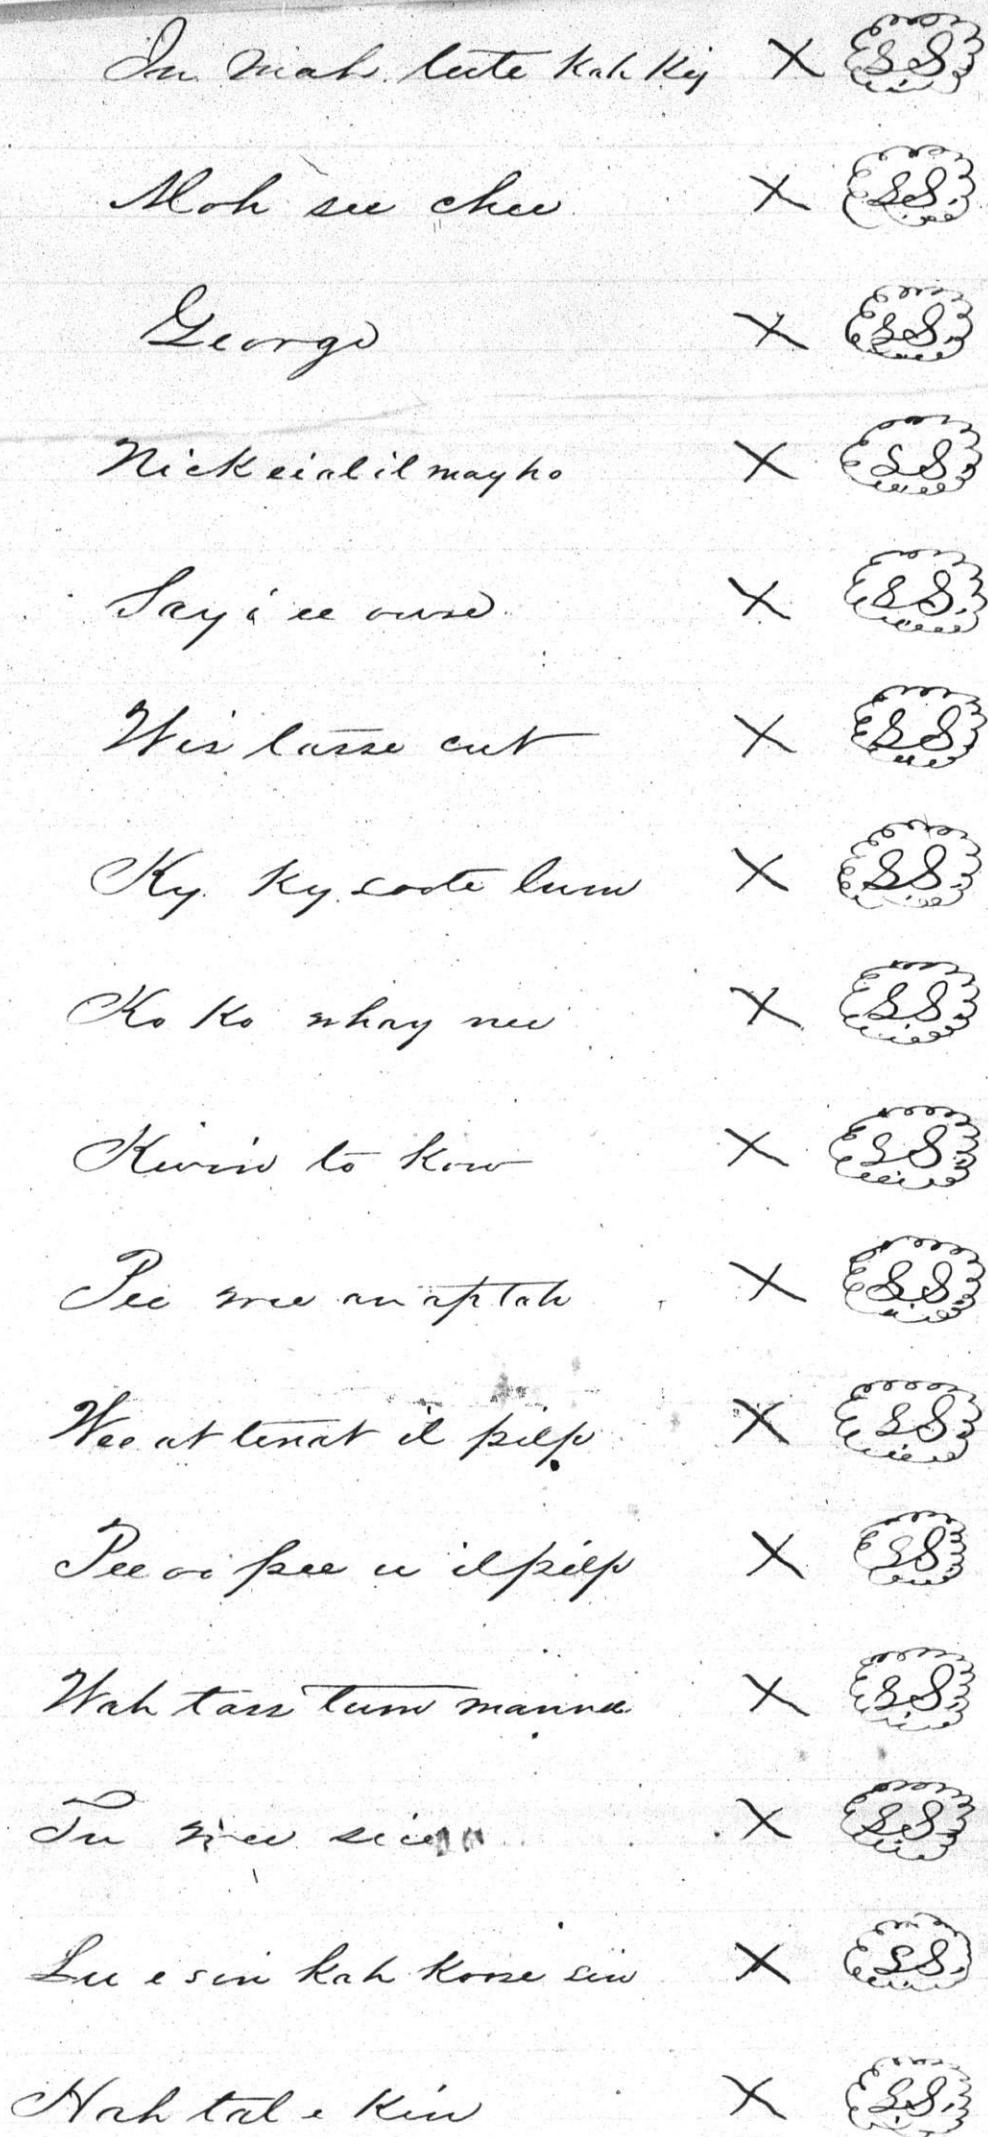 In mah tute kah ky X S.S.
Moh see chee X S.S.
George X S.S.
Nick eial it may ho X S.S.
Say i ee ouse X S.S.
Wis tasse cut X S.S.
Ky ky soote lum X S.S.
Ko ko whay nee X S.S.
Kwin to kow X S.S.
Pee wee au ap tah X S.S.
Wee at tenat il pilp X S.S.
Pee oo pee u il pilp X S.S.
Wah tass tum mannee X S.S.
Tu wee sice X S.S.
Lu e sin kah koose sin X S.S.
Hah tal e kin X S.S.